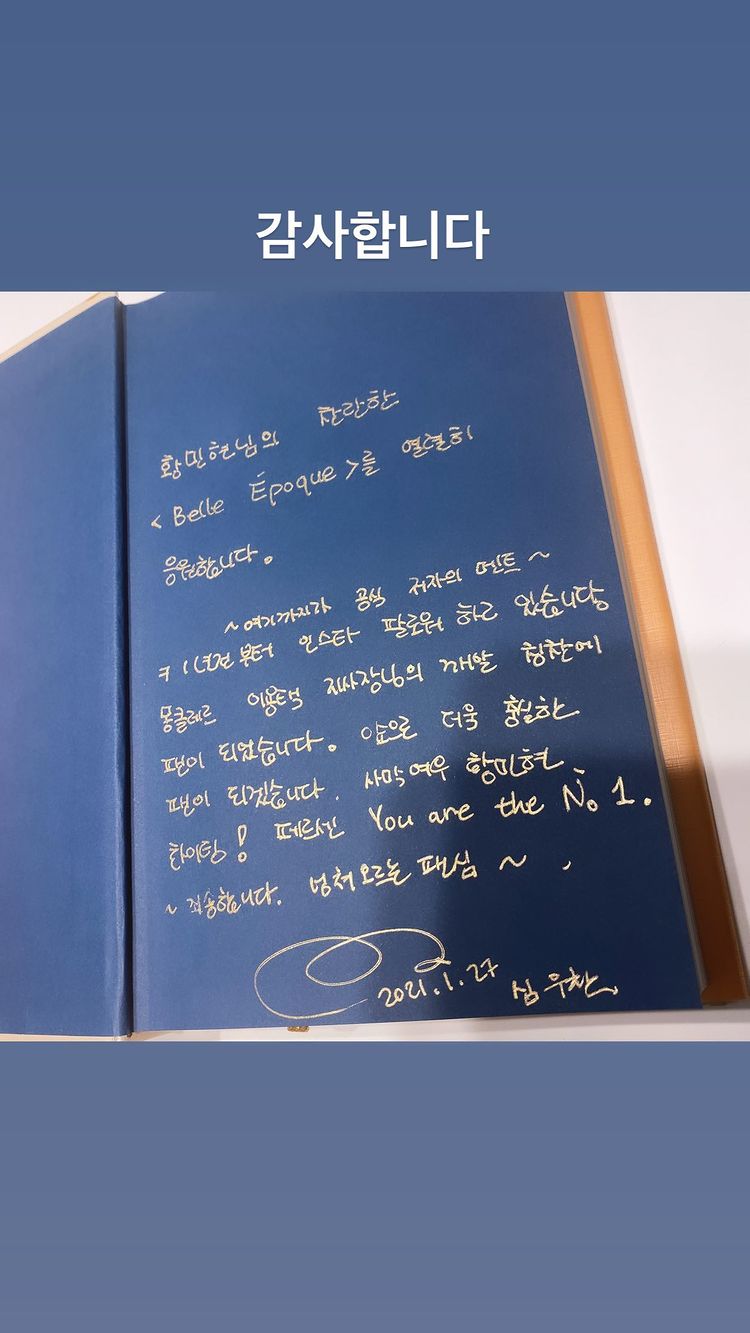 감사합니다
황민현님의 찬란한
< Belle Époque >를 열렬히
응원합니다.
~여기까지가 공식 저자의 멘트~
1년전부터 인스타 팔로워 하고 있습니다
몽클레르 이용택 지사장님의 깨알 칭찬에
팬이 되었습니다. 앞으로 더욱 훌륭한
팬이 되겠습니다. 사막여우 황민현
화이팅! 페르센 You are the No 1.
~ 죄송합니다. 넘쳐오르는 팬심 ~
2021.1.27 심우찬